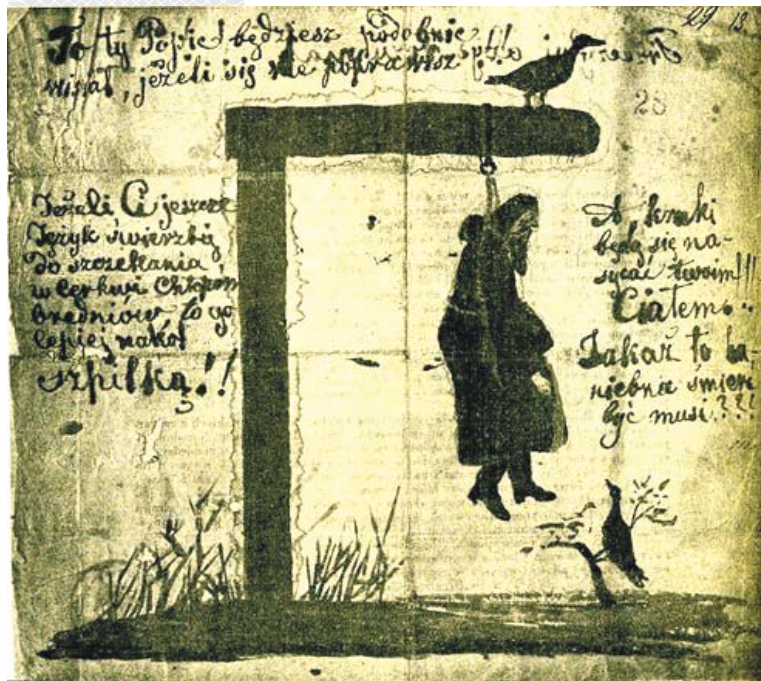 To ty Popie! będziesz podobnie
wisiał, jeżeli się nie poprawisz!!
29 13.
28
Jeżeli Ci jeszcze
Język świerzbi
do szczekania
w Cerkwi Chłopom
bredniów to go
lepiej nakol
szpilką!!
A kruki
będą się na-
sycać twoim!!!
Ciałem..
Jakaż to ha-
niebna śmierć
być musi???!